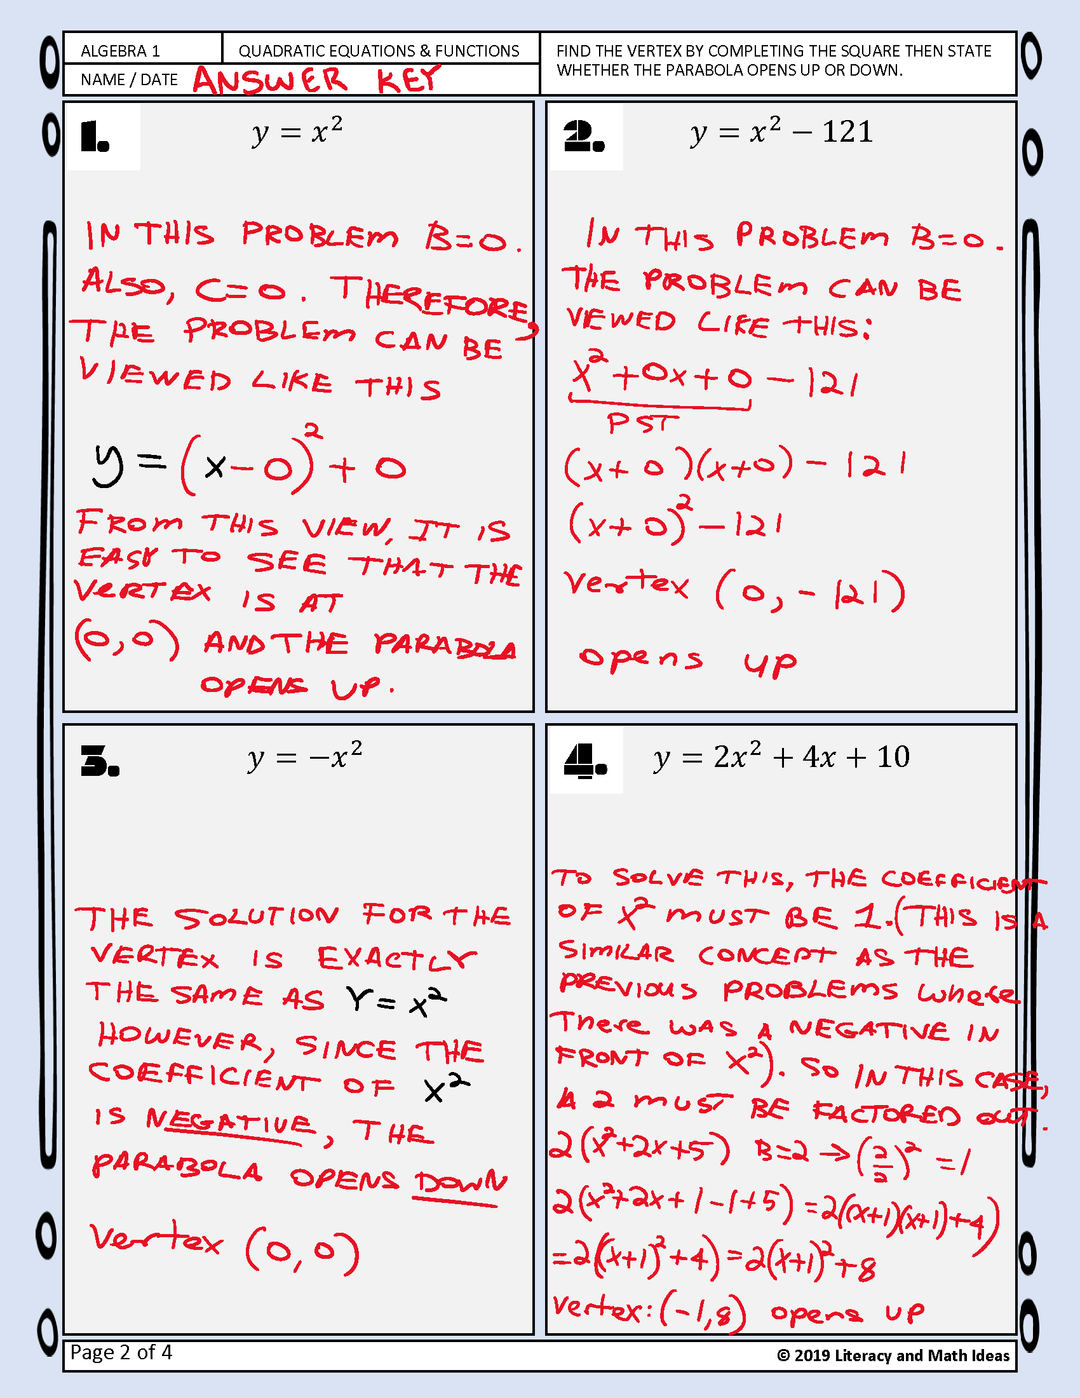 ALGEBRA 1
QUADRATIC EQUATIONS & FUNCTIONS
NAME / DATE ANSWER KEY
FIND THE VERTEX BY COMPLETING THE SQUARE THEN STATE
WHETHER THE PARABOLA OPENS UP OR DOWN.
1. y = x²
IN THIS PROBLEM B=0.
ALSO, C=0. THEREFORE,
THE PROBLEM CAN BE
VIEWED LIKE THIS
y = (x-0)² + 0
FROM THIS VIEW, IT IS
EASY TO SEE THAT THE
VERTEX IS AT
(0,0) AND THE PARABOLA
OPENS UP.
2. y = x² − 121
IN THIS PROBLEM B=0.
THE PROBLEM CAN BE
VIEWED LIKE THIS:
x²+0x+0 - 121
PST
(x+0)(x+0) - 121
(x+0)² - 121
vertex (0, -121)
opens up
3. y = −x²
THE SOLUTION FOR THE
VERTEX IS EXACTLY
THE SAME AS Y = x²
HOWEVER, SINCE THE
COEFFICIENT OF x²
IS NEGATIVE, THE
PARABOLA OPENS DOWN
vertex (0,0)
4. y = 2x² + 4x + 10
TO SOLVE THIS, THE COEFFICIENT
OF x² MUST BE 1. (THIS IS A
SIMILAR CONCEPT AS THE
PREVIOUS PROBLEMS where
There WAS A NEGATIVE IN
FRONT OF x²). SO IN THIS CASE,
A 2 MUST BE FACTORED out.
2(x²+2x+5) B=2 → (2/2)² = 1
2(x²+2x+1-1+5) = 2((x+1)(x+1)+4)
=2((x+1)²+4) = 2(x+1)²+8
vertex: (-1,8) opens UP
Page 2 of 4
© 2019 Literacy and Math Ideas